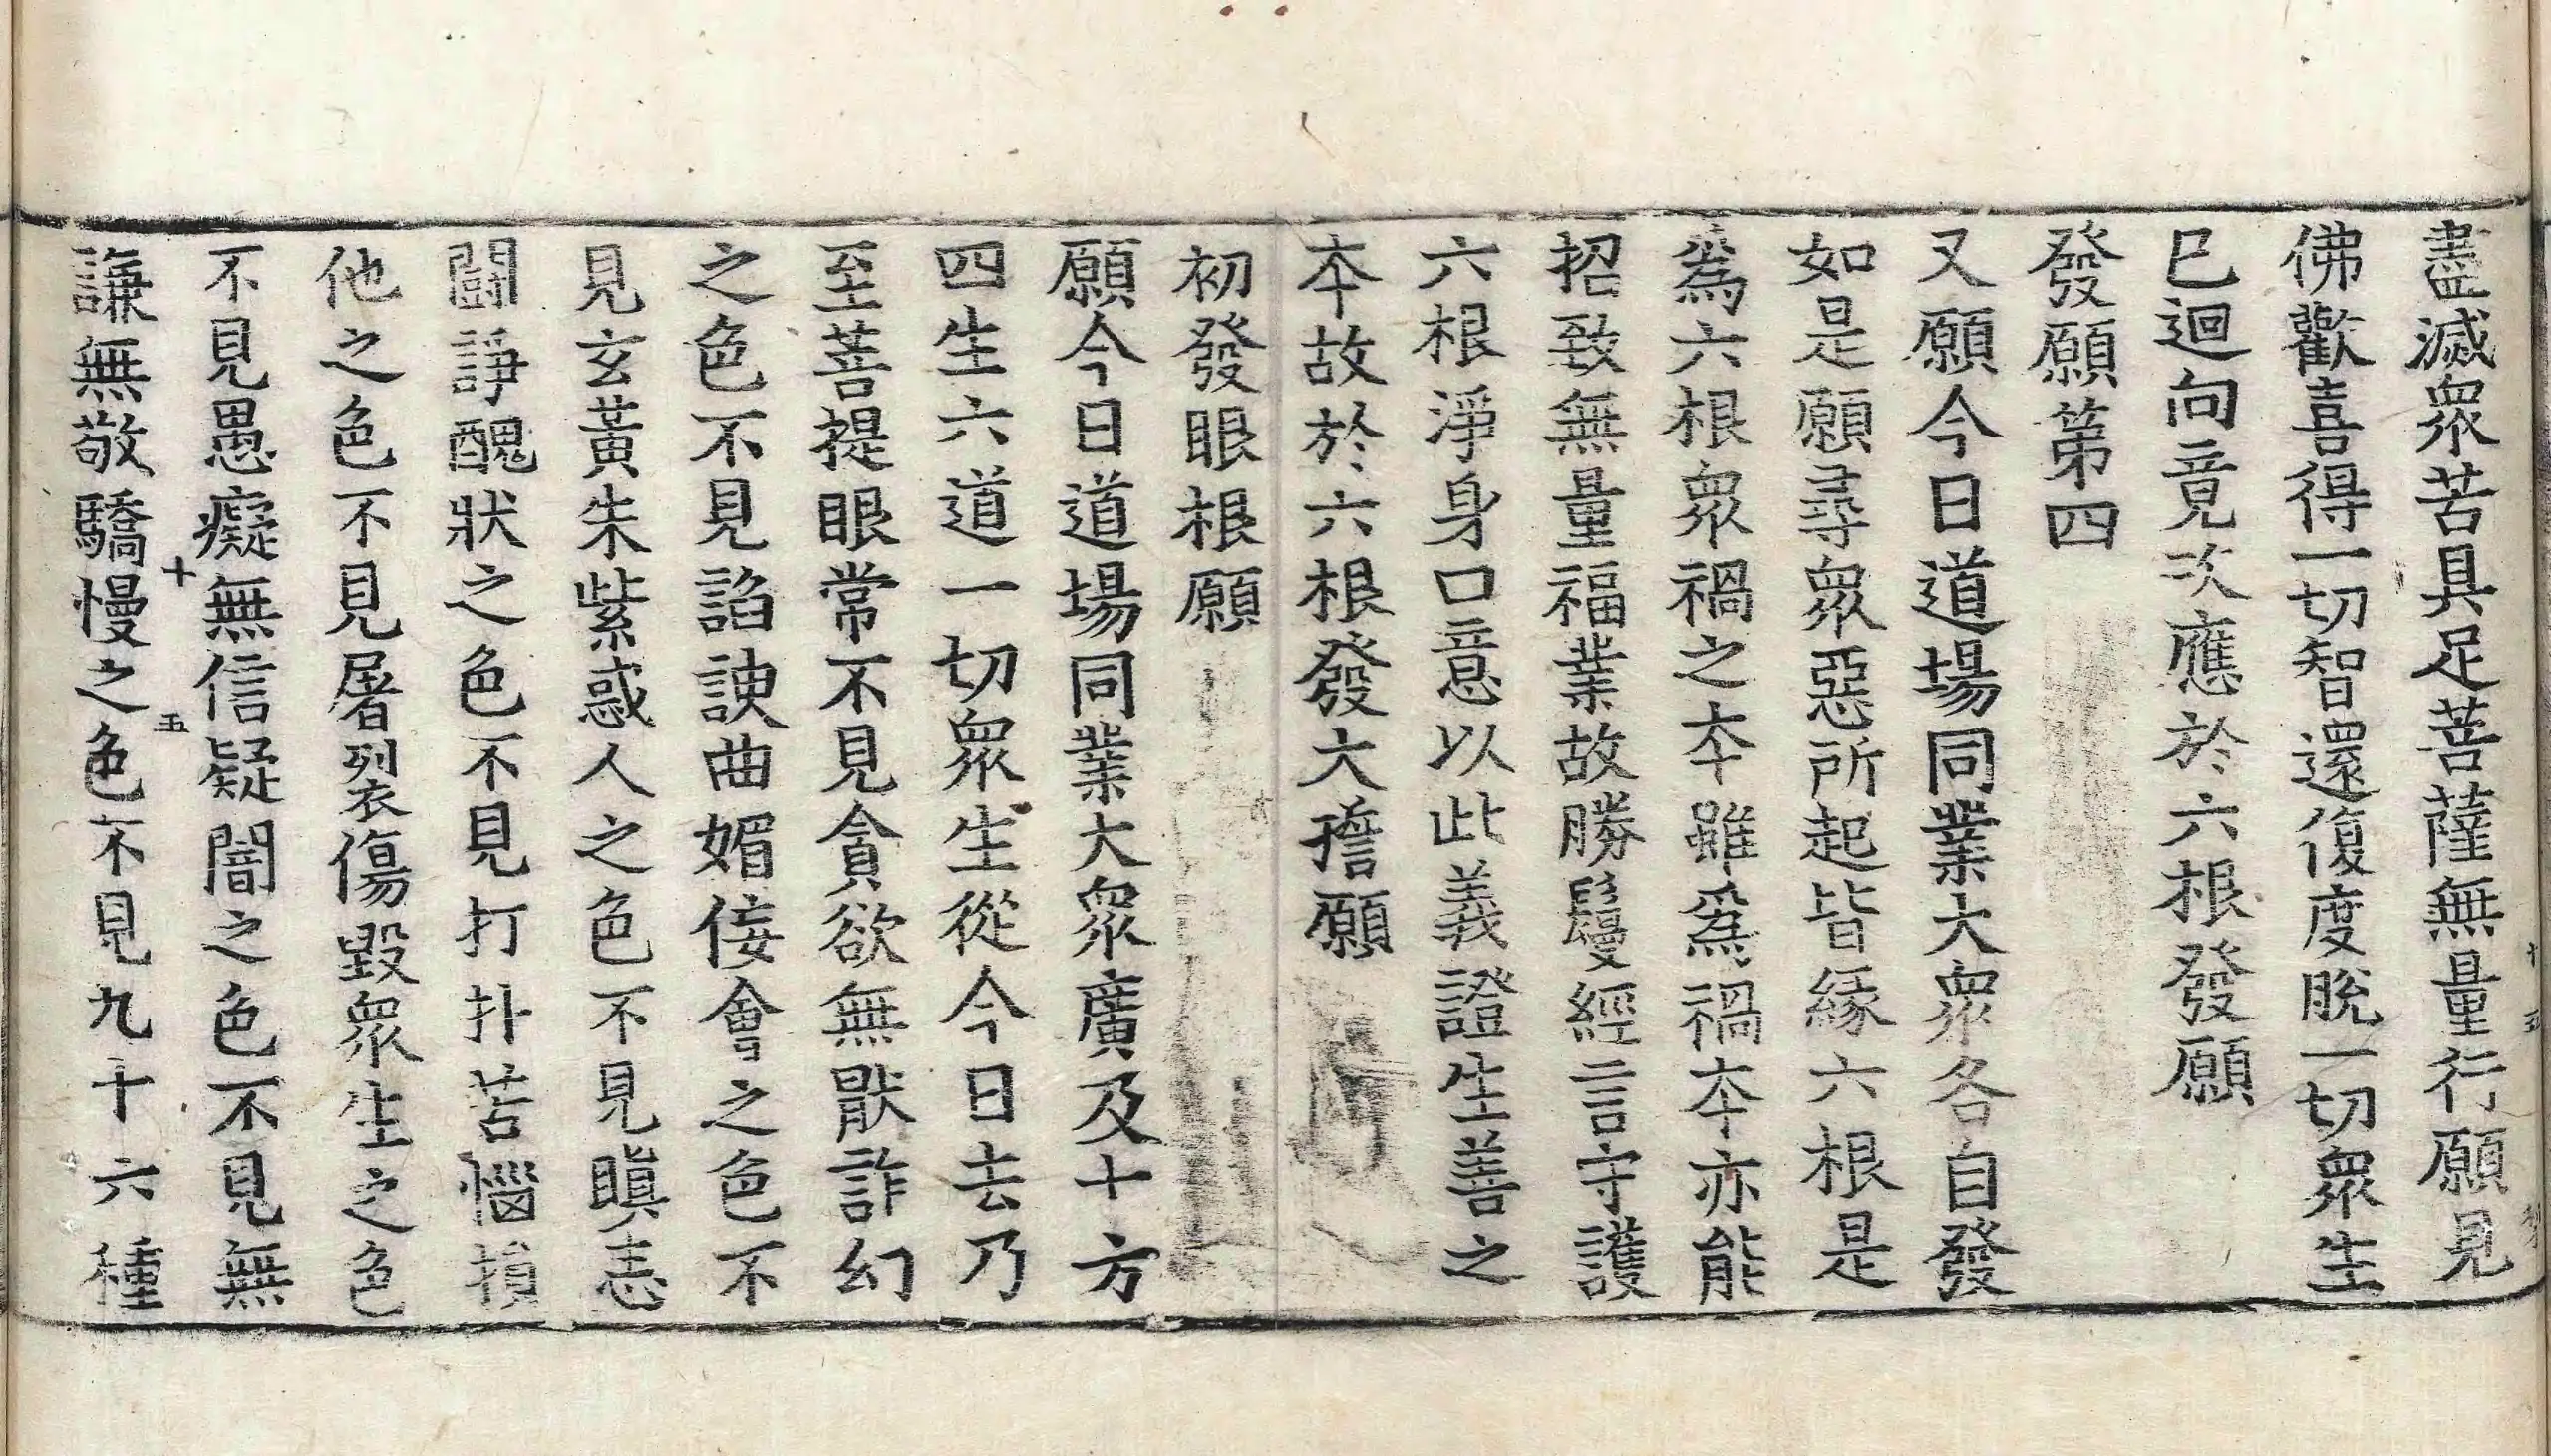 盡滅衆苦具足菩薩無量行願見
佛歡喜得一切智還復度脫一切衆生
已迴向竟次應於六根發願
發願第四
又願今日道場同業大衆各自發
如是願尋衆惡所起皆緣六根是
爲六根衆禍之本雖爲禍本亦能
招致無量福業故勝鬘經言守護
六根淨身口意以此義證生善之
本故於六根發大擔願
初發眼根願
願今日道場同業大衆廣及十方
四生六道一切衆生從今日去乃
至菩提眼常不見貪欲無猒詐幻
之色不見諂諛曲媚佞會之色不
見玄黃朱紫惑人之色不見瞋恚
鬪諍醜狀之色不見打扑苦惱損
他之色不見屠裂傷毀衆生之色
不見愚癡無信疑闇之色不見無
十五
謙無敬驕慢之色不見九十六種